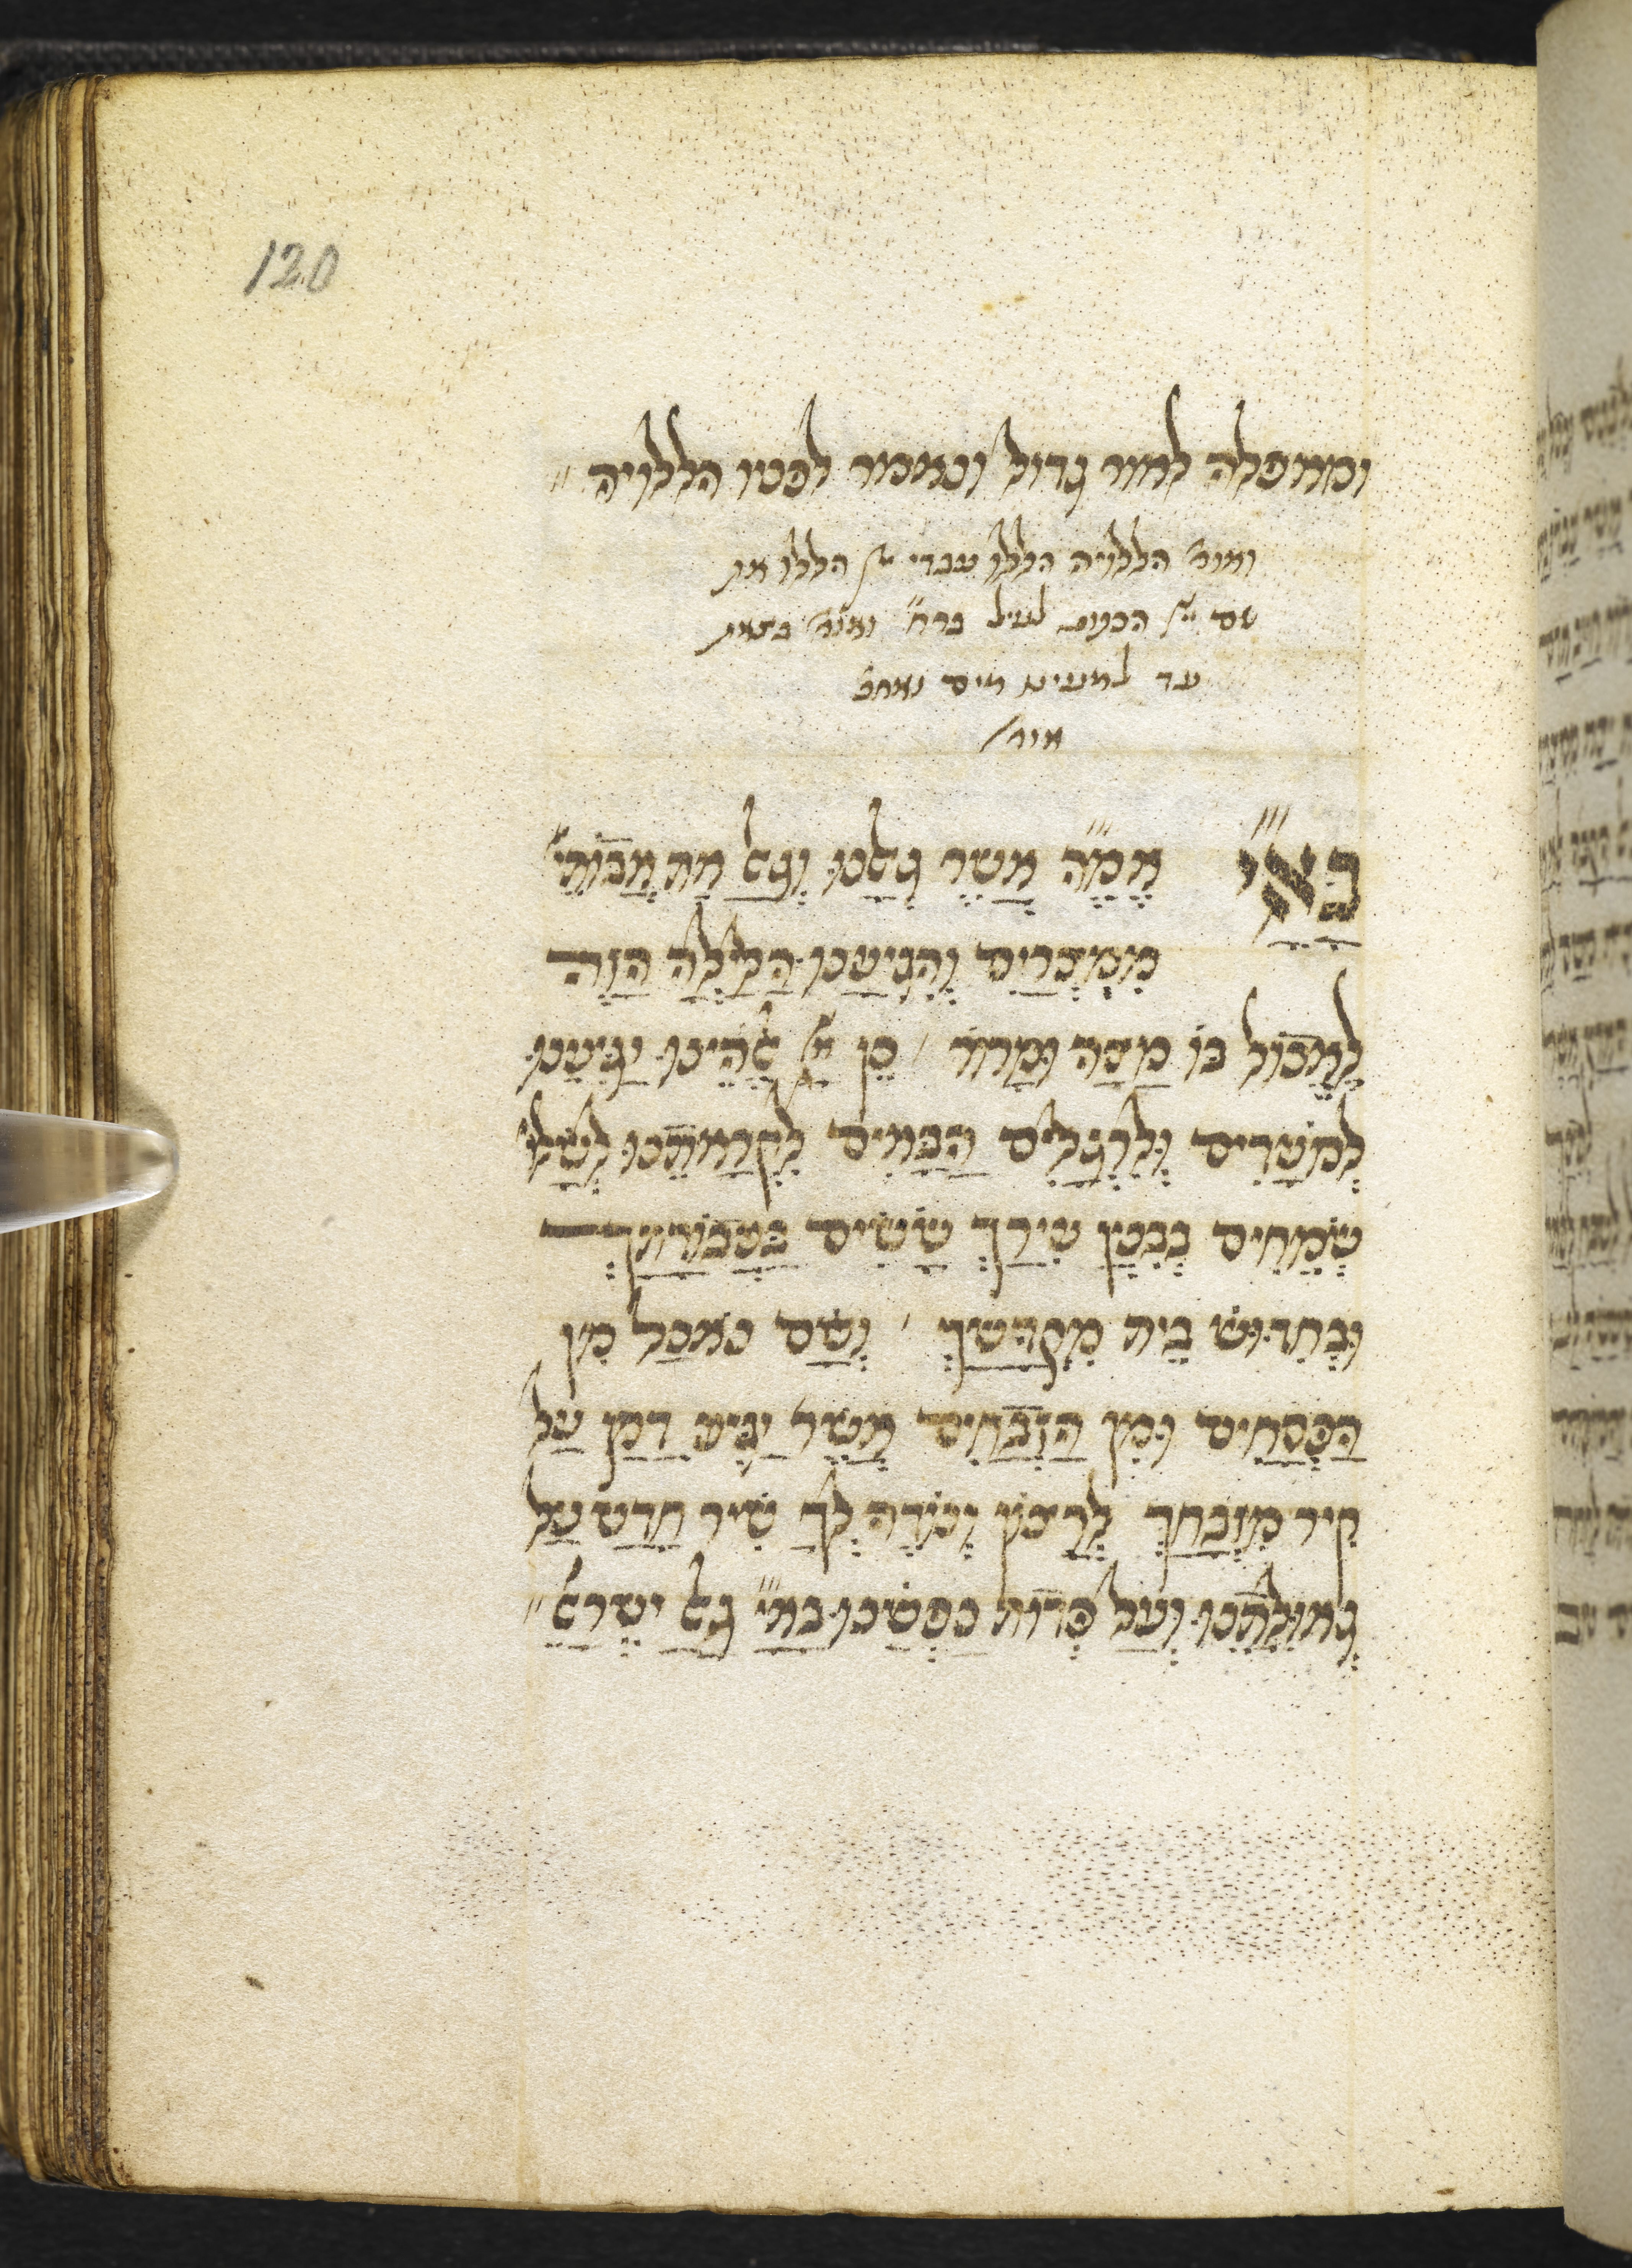 120
ומאפלה לאור גדול ונאמר לפניו הללויה
ואומ' הללויה הללו עבדי יי' הללו את
שם יי' לעיל ואומ' בצאת
עד למעינו מים ואחר
אומ'
בא"י אמ"ה אשר גאלנו וגאל את אבותי'
ממצרים והגיענו הלילה הזה
לאכול בו מצה ומרור / כן יי' אלהינו יגיענו
למועדים ולרגלים הבאים לקראתנו לשלו'
שמחים בבנין עירך ששים בעבודתך
ובחדוש בית מקדשך / ושם נאכל מן
הפסחים ומן הזבחים אשר יגיע דמן על
קיר מזבחך לרצון ונודה לך שיר חדש על
גאולתנו ועל פדות נפשנו בא"י גאל ישראל